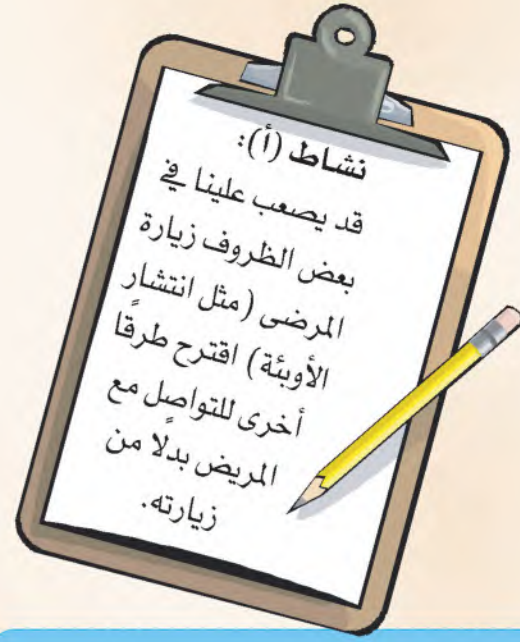 نشاط (أ):
قد يصعب علينا في
بعض الظروف زيارة
المرضى (مثل انتشار
الأوبئة) اقترح طرقًا
أخرى للتواصل مع
المريض بدلًا من
زيارته.